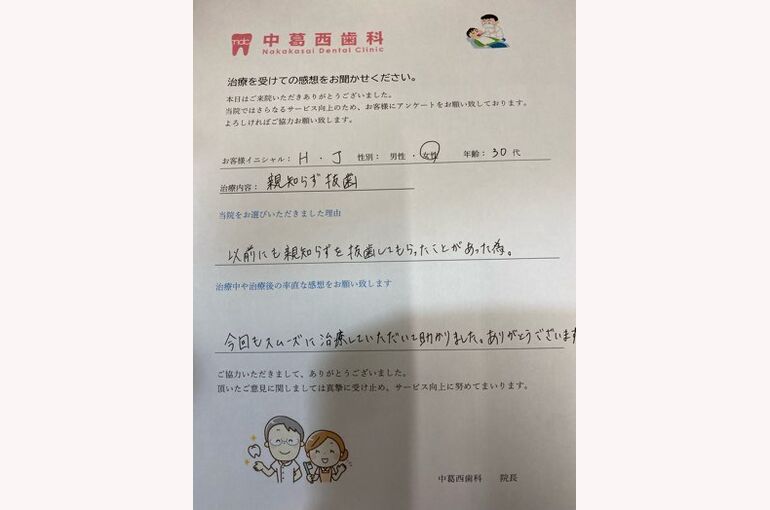 中葛西歯科
Nakakasai Dental Clinic
治療を受けての感想をお聞かせください。
本日はご来院いただきありがとうございました。
当院ではさらなるサービス向上のため、お客様にアンケートをお願い致しております。
よろしければご協力お願い致します。
お客様イニシャル： H ・ J 性別： 男性 ・ 女性 年齢： 30 代
治療内容： 親知らず抜歯
当院をお選びいただきました理由
以前にも親知らずを抜歯してもらったことがあった為。
治療中や治療後の率直な感想をお願い致します
今回もスムーズに治療していただいて助かりました。ありがとうございます
ご協力いただきまして、ありがとうございました。
頂いたご意見に関しましては真摯に受け止め、サービス向上に努めてまいります。
中葛西歯科 院長